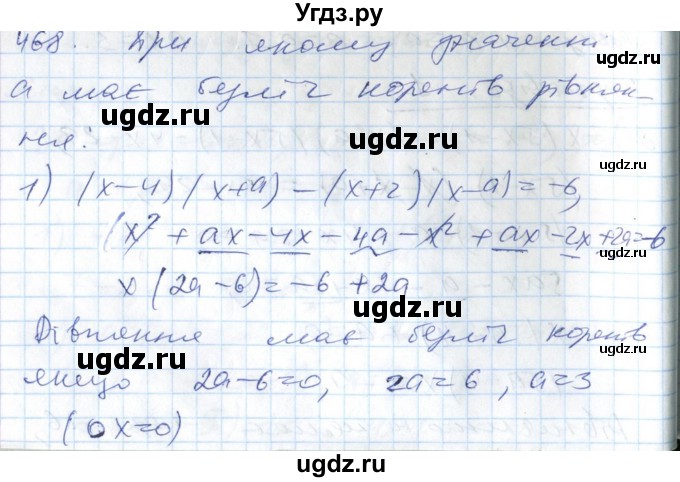 Угдз.ру
468. При якому значенні
а має безліч коренів рівнян-
ня:
1) (x-4)(x+a)-(x+2)(x-a)=-6,
(x²+ax-4x-4a-x²+ax-2x+2a=-6
x(2a-6)=-6+2a
Рівняння має безліч коренів
якщо 2a-6=0, 2a=6, a=3
(0x=0)
ugdz.ru
ugdz.ru
ugdz.ru
ugdz.ru
ugdz.ru
ugdz.ru
ugdz.ru
ugdz.ru
ugdz.ru
ugdz.ru
ugdz.ru